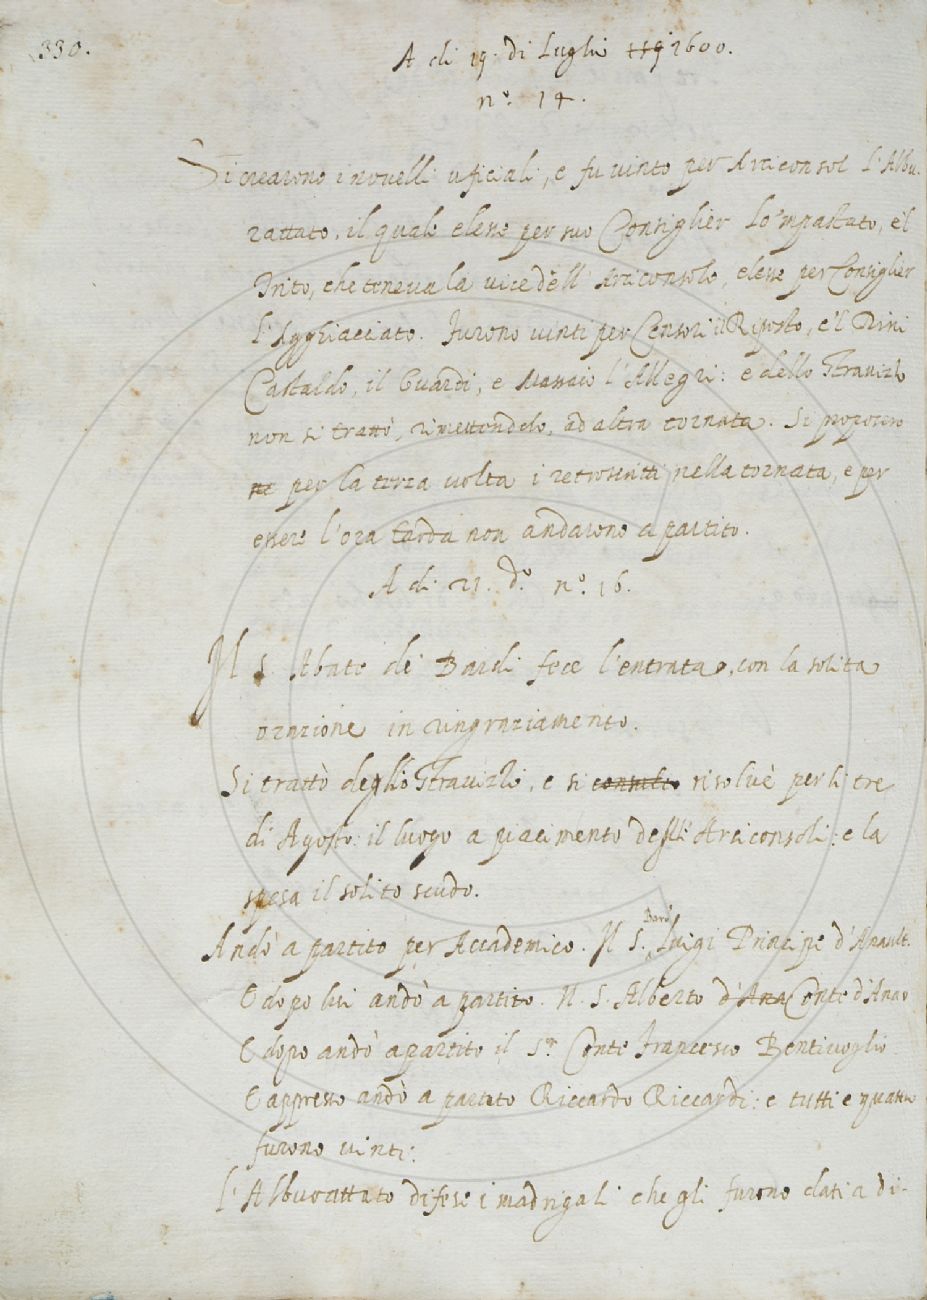 330.
A di 19. di Luglio 1600.
n.° 14.
Si crearono i novelli uficiali, e fu vinto per Arciconsol l'Abbu-
rattato, il quale elesse per suo Consiglier lo 'mpastato, e 'l
Trito, che teneva la vice dell' Arciconsolo, elesse per Consiglier
l'Agghiacciato. furono vinti per Censori il Riposto, e 'l Dini
Castaldo, il Guardi, e Massaio l'Allegri: e dello Stravizio
non si trattò, rimettendolo, ad altra tornata. Si proposero
ne per la terza volta i retroscritti nella tornata, e per
essere l'ora tarda non andarono a partito.
A di 21. d.° n.° 16.
Il S. Abate de' Bardi fece l'entrata, con la solita
orazione in ringraziamento.
Si trattò degli Stravizi, e si risolvè per li tre
di Agosto: il luogo a piacimento degli Arciconsoli: e la
spesa il solito scudo.
Andò a partito per Accademico. Il S. Barò Luigi Principe d'Anault.
E dopo lui andò a partito. Il S. Alberto d'Ana Conte d'Anao
E dopo andò a partito il S.r Conte Francesco Bentivoglio
E appresso andò a partito Riccardo Riccardi: e tutti e quattro
furono vinti.
l'Abburattato difese i madrigali che gli furono dati a di-